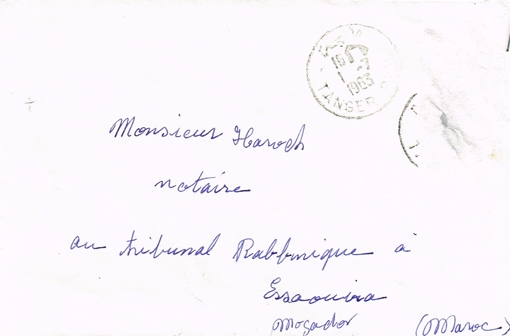 16
1
1963
TANGER
Monsieur Haroch
notaire
au tribunal Rabbinique à
Essaouira
Mogador (Maroc)